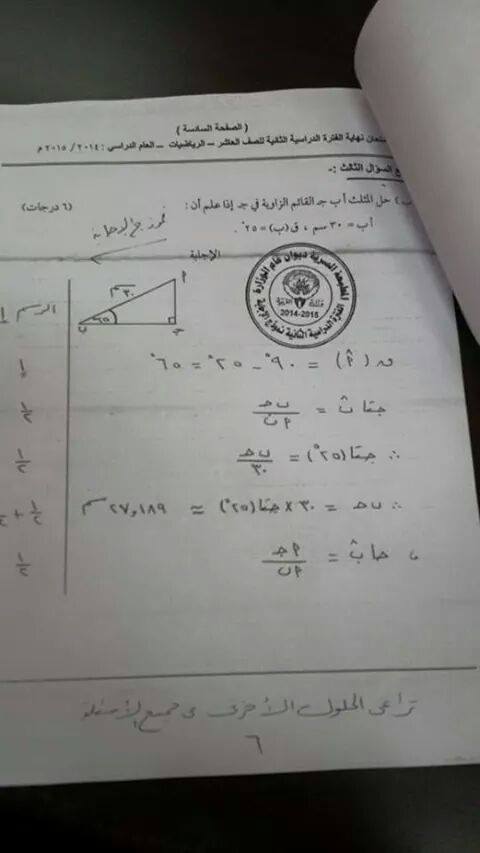 ( الصفحة السادسة )
نهاية الفترة الدراسية الثانية للصف العاشر – الرياضيات – العام الدراسي : ٢٠١٤ / ٢٠١٥ م
السؤال الثالث :-
( ٦ درجات )
حل المثلث أ ب جـ القائم الزاوية في جـ إذا علم أن :
أب = ٣٠ سم ، ق(ب) = ٢٥°
نموذج الإجابة
الإجابة
المطبعة السرية ديوان عام الوزارة
دولة الكويت
2014-2015
الفترة الدراسية الثانية نموذج الإجابة
الرسم ١
٣٠ سم
٢٥
P
ب
جـ
ق (P̂) = ٩٠° - ٢٥° = ٦٥°
١
جتا ب̂ = ب جـ / P ب
١/٢
∴ جتا (٢٥°) = ب جـ / ٣٠
١/٢
∴ ب جـ = ٣٠ × جتا (٢٥°) ≈ ٢٧,١٨٩ سم
١/٢ +
، جا ب̂ = P جـ / P ب
١/٢
تراعى الحلول الأخرى في جميع الأسئلة
٦